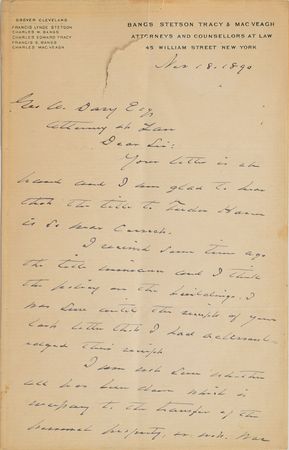 GROVER CLEVELAND
FRANCIS LYNDE STETSON
CHARLES W. BANGS
CHARLES EDWARD TRACY
FRANCIS S. BANGS
CHARLES MAC VEAGH
BANGS STETSON TRACY & MAC VEAGH
ATTORNEYS AND COUNSELLORS AT LAW
45 WILLIAM STREET NEW YORK
Nov 18. 1890
Geo W. Esq
Attorney at Law
Dear Sir:
Your letter is at
hand and I am glad to hear
that the title to
is so near
I received some time ago
the title insurance and I think
the policy on the buildings. I
was sure until the receipt of your
last letter that I had acknowl-
edged their receipt
I am not sure whether
all has been done which is
necessary to the transfer of the
personal property, or not. Was